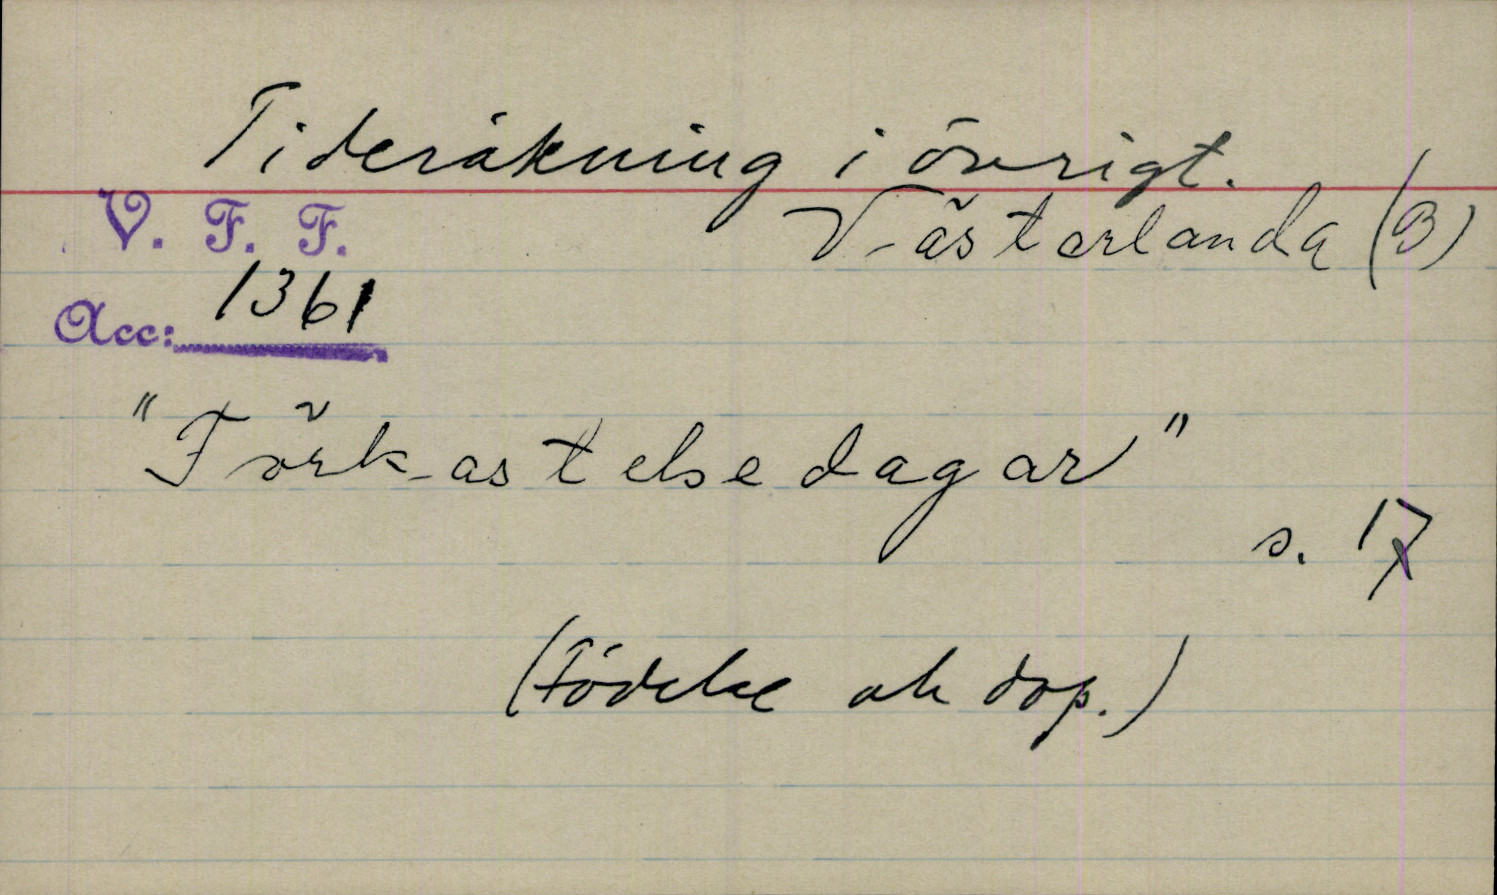 Tideräkning i övrigt.
V. F. F.
Västerlanda (B)
Acc: 1361
"Förkastelsedagar"
s. 17
(Födelse och dop.)